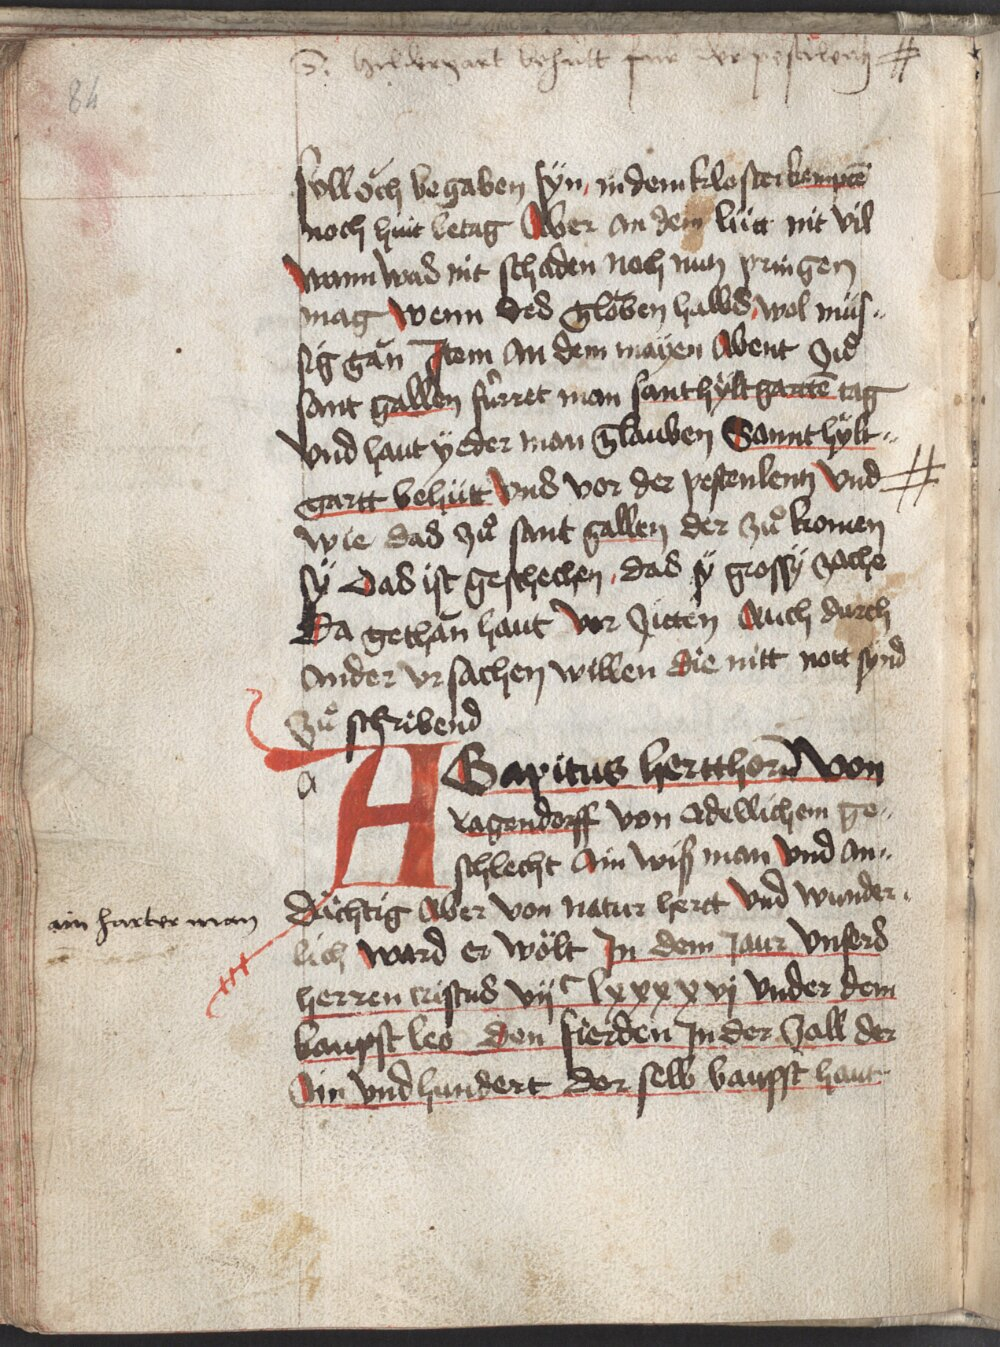 S. Hildergart behütt fur der pestilentz #
84
soll och begaben syn, in dem kloster kempte
noch hüt betag Aber an dem lütt nit vil
wann wad nit schaden noch nutz pringen
mag wenn ded globen hallbd, wol müs-
sig gän Jtem an dem mayen Abent zid
sant gallen fürret man sant hyltgarte tag
vnd haut yeder man glauben Sannt hylt-
gartt behütt vnd vor der pestenlentz vnd #
wie dad zů sant gallen der zů komen
sy dad ist geschechen, dad sy grossy zache
Da gethan haut vor zieten Auch durch
ander vrsachen willen die nitt nott synd
zů schribend
a
AGapitus hertthorn von
ragendorff von adellichem ge-
schlecht Ain wiß man vnd an-
dächtig Aber von natur hertt vnd wunder-
ain harter man
lich ward er wölt Jn dem Jaur vnserd
herren cristud vijc lxxxxvj vnder dem
baupst leo den fierden Jn der zall der
Ain vnd hundert der selb baupst haut